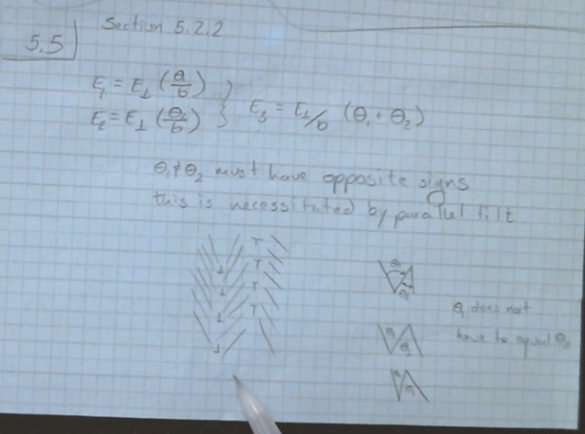 5.5
Section 5.2.2
E₁ = E⊥ (θ/b)
E₂ = E⊥ (θ₂/b) } E₃ = E⊥/b (θ₁ + θ₂)
θ₁ ≠ θ₂ must have opposite signs
this is necessitated by parallel tilt
θ₁ does not
have to equal θ₂